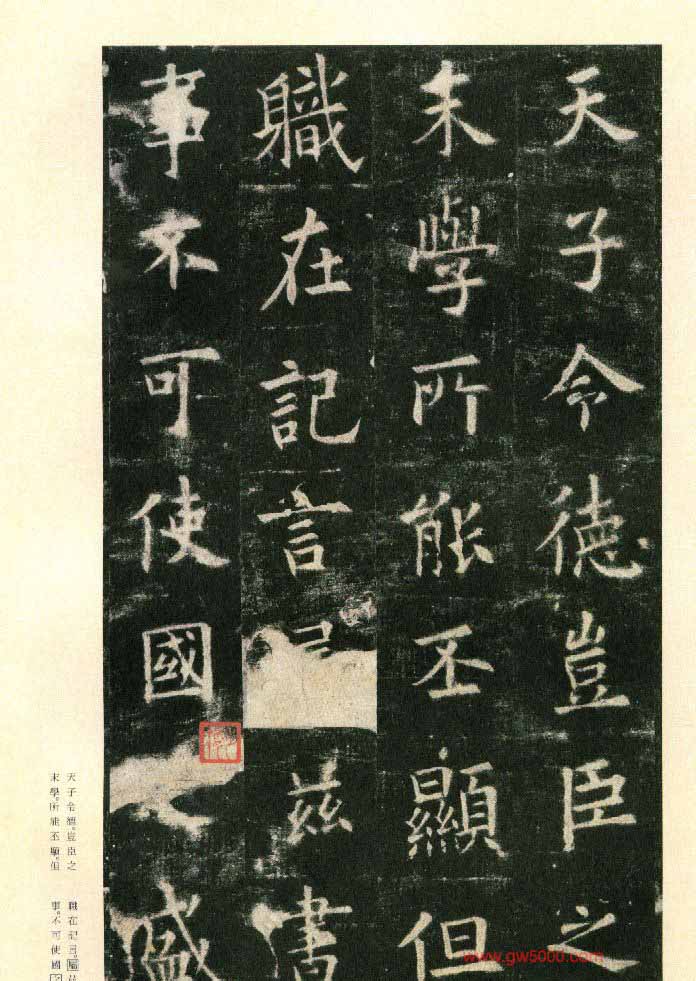 天子令德豈臣之
末學所能丕顯但
職在記言茲書
事不可使國盛
天子令德。豈臣之
末學。所能丕顯。但
職在記言。
事。不可使國
www.gw5000.com